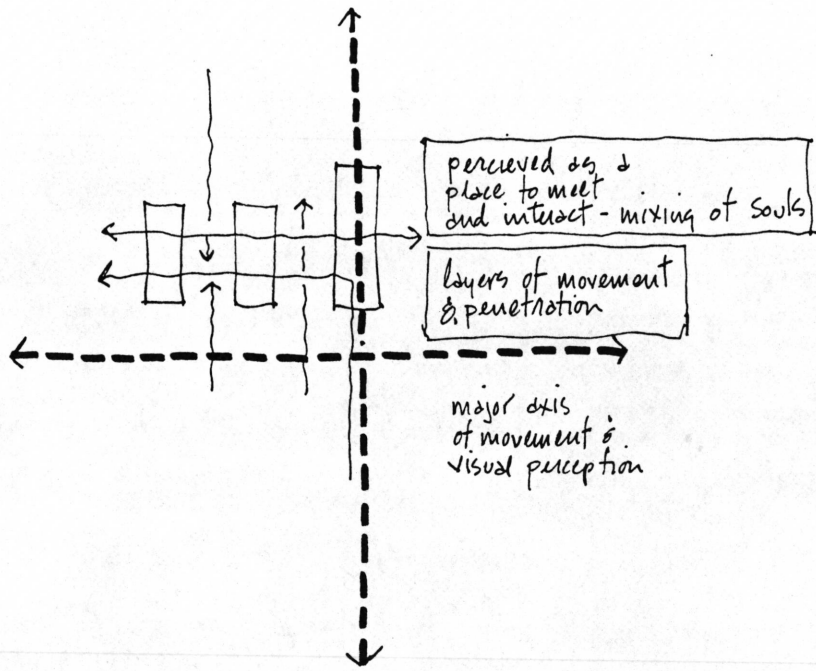 percieved as a
place to meet
and interact - mixing of souls
layers of movement
& penetration
major axis
of movement &
visual perception